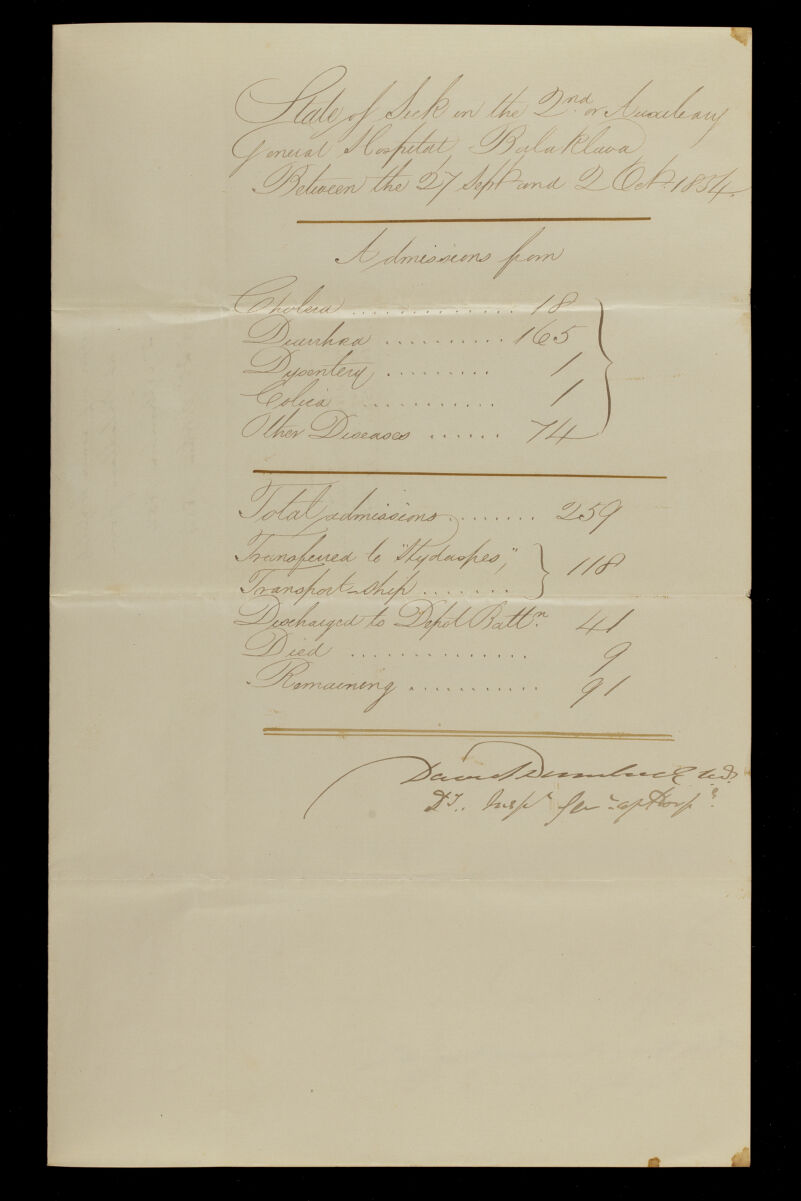 State of Sick in the 2nd. or Auxileary
General Hospital, Balaklava
Between the 27 Sept. and 2 Oct. 1854.
Admissions from
Cholera .............. 18
Diarrhœa .......... 165
Dysentery ......... 1
Colica ............ 1
Other Diseases ...... 74
Total admissions ........ 259
Transferred to "Hydaspes," 118
Transport-ship ........
Discharged to Depôt Battn. 41
Died .............. 9
Remaining ........... 91
David Dumbreck M.D.
Dy. Inspr. Genl. of Hospls.